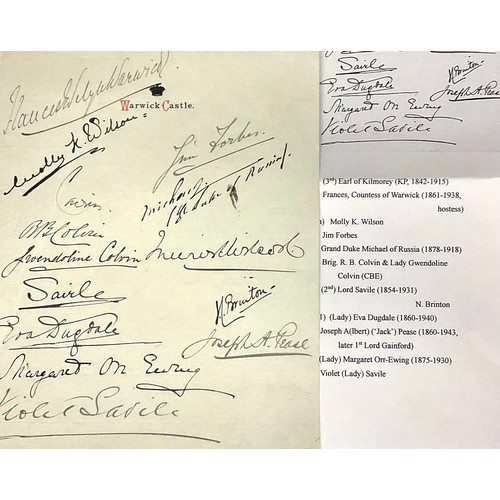 Warwick Castle.
Frances Evelyn Warwick
Molly K. Wilson
Jim Forbes
Michael
Gr Duke of Russia
RB Colvin
Gwendoline Colvin
Savile
N. Brinton
Eva Dugdale
Joseph A. Pease
Margaret Orr Ewing
Violet Savile
Savile
N. Brinton
Eva Dugdale
Joseph A. Pease
Margaret Orr Ewing
Violet Savile
(3rd) Earl of Kilmorey (KP, 1842-1915)
Frances, Countess of Warwick (1861-1938,
hostess)
) Molly K. Wilson
Jim Forbes
Grand Duke Michael of Russia (1878-1918)
Brig. R. B. Colvin & Lady Gwendoline
Colvin (CBE)
2nd) Lord Savile (1854-1931)
N. Brinton
) (Lady) Eva Dugdale (1860-1940)
Joseph A(lbert) ('Jack') Pease (1860-1943,
later 1st Lord Gainford)
(Lady) Margaret Orr-Ewing (1875-1930)
Violet (Lady) Savile